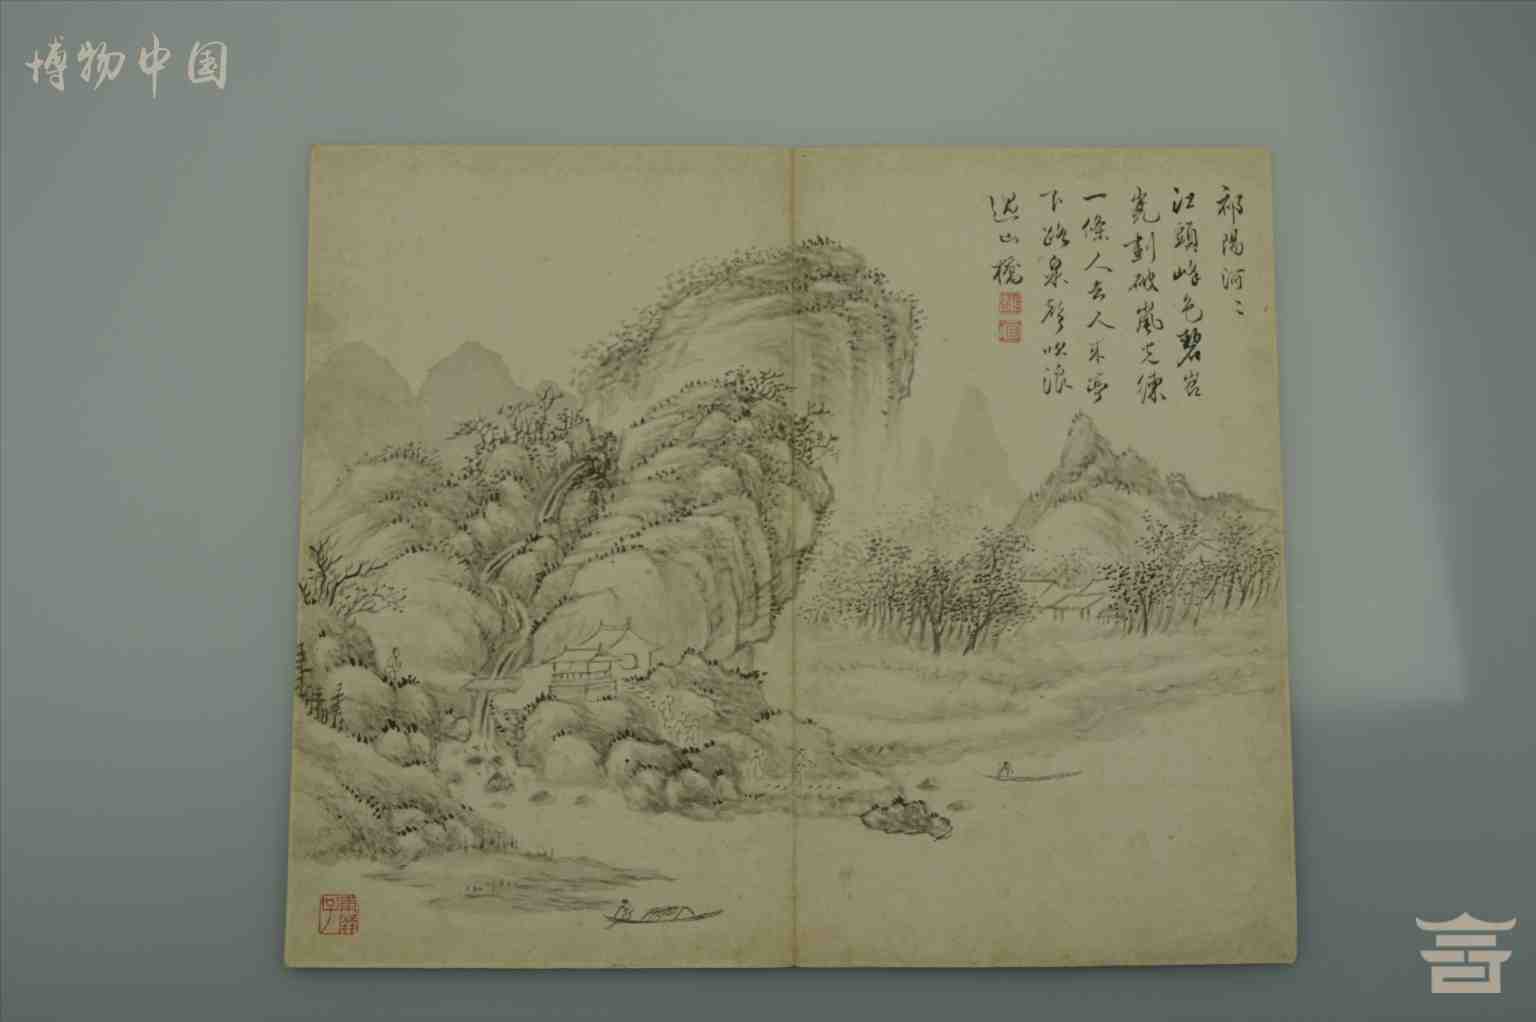 博物中国
祁陽河〻
江頭峰色碧岧
嵬劃破嵐光練
一條人去人來亭
下路泉聲吹浪
過山橈